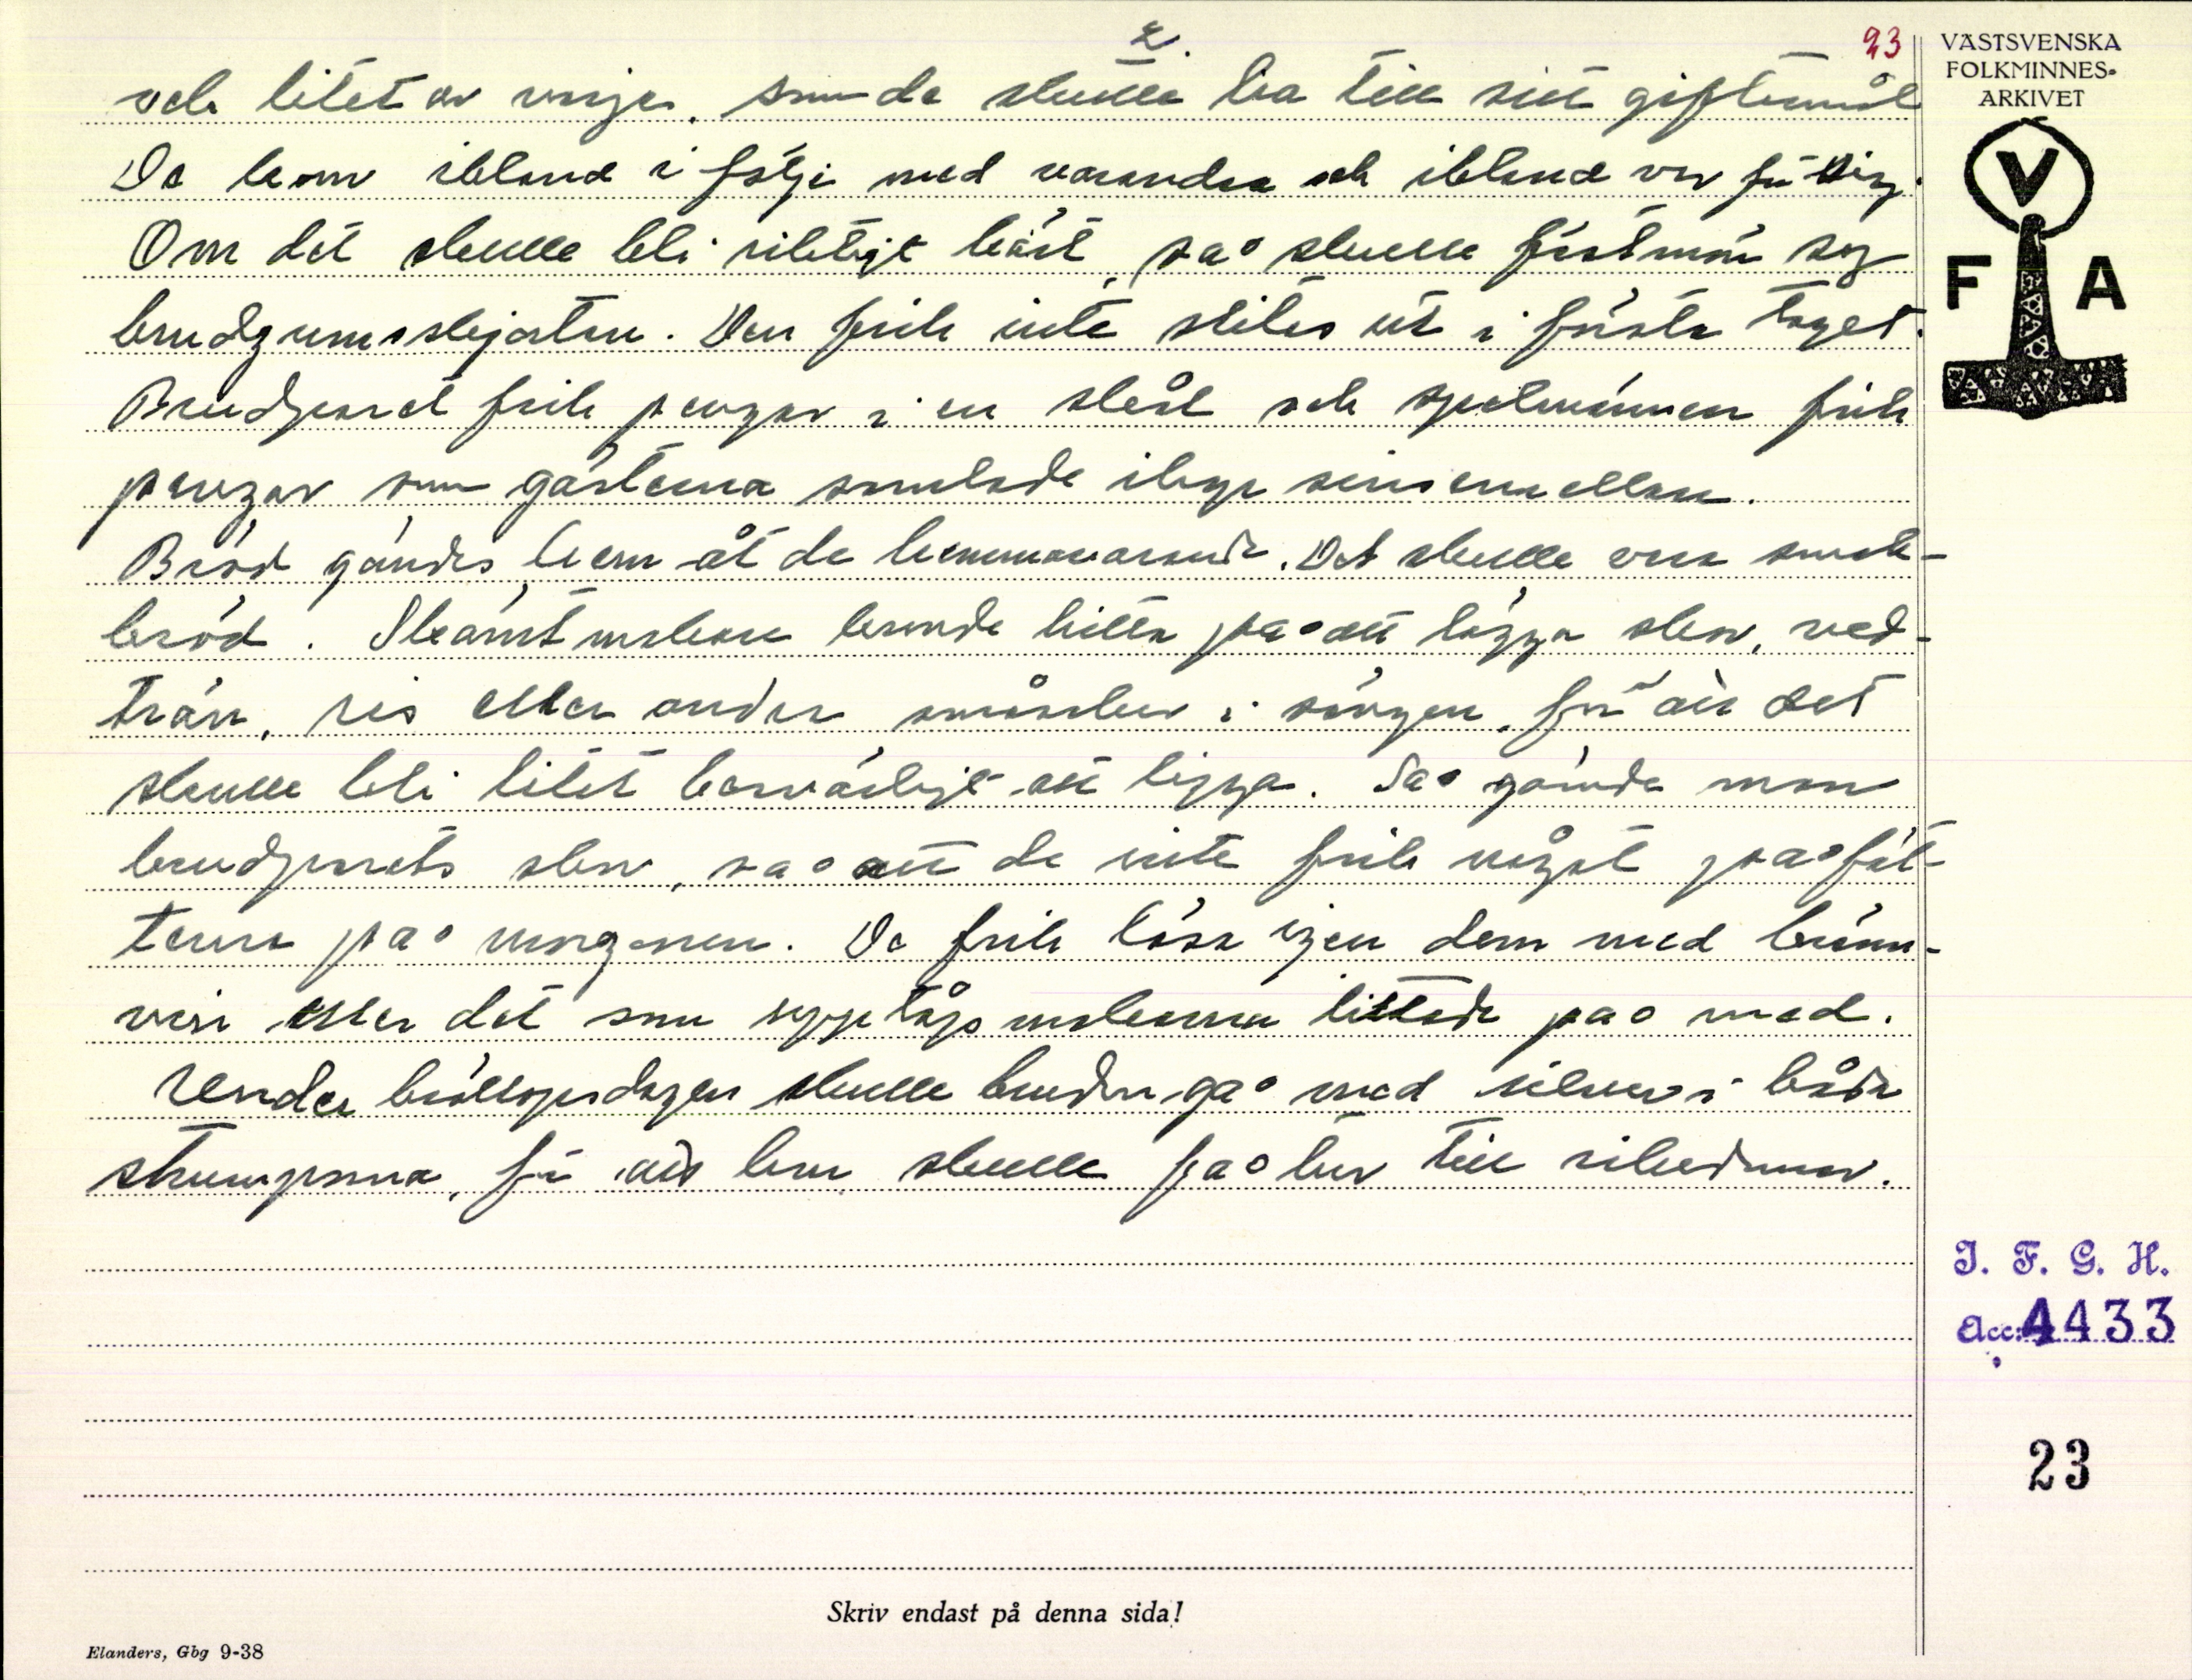 2.
23
och litet av varje, som de skulle ha till sitt giftermål
De kom ibland i följe med varandra och ibland var för sig.
Om det skulle bli riktigt bäst, så skulle fästmön sy
brudgumsskjortan. Den fick inte slitas ut i första taget.
Brudparet fick pengar i en skål och spelmännen fick
pengar som gästerna samlade ihop sinsemellan.
Bröd gömdes hem åt de hemmavarande. Det skulle vara smak-
bröd. Skämtmakare kunde hitta på att lägga skor, ved-
trän, ris eller andra småsaker i sängen, för att det
skulle bli litet besvärligt att ligga. Så gömde man
brudparets skor, så att de inte fick något på föt-
terna på morgonen. De fick lösa igen dem med bränn-
vin eller det som upptågsmakarna hittade på med.
Under bröllopsdagen skulle bruden gå med silver i båda
strumporna, för att hon skulle få lov till rikedomar.
VÄSTSVENSKA
FOLKMINNES-
ARKIVET
V
F A
I. F. G. H.
Acc: 4433
23
Skriv endast på denna sida!
Elanders, Gbg 9-38